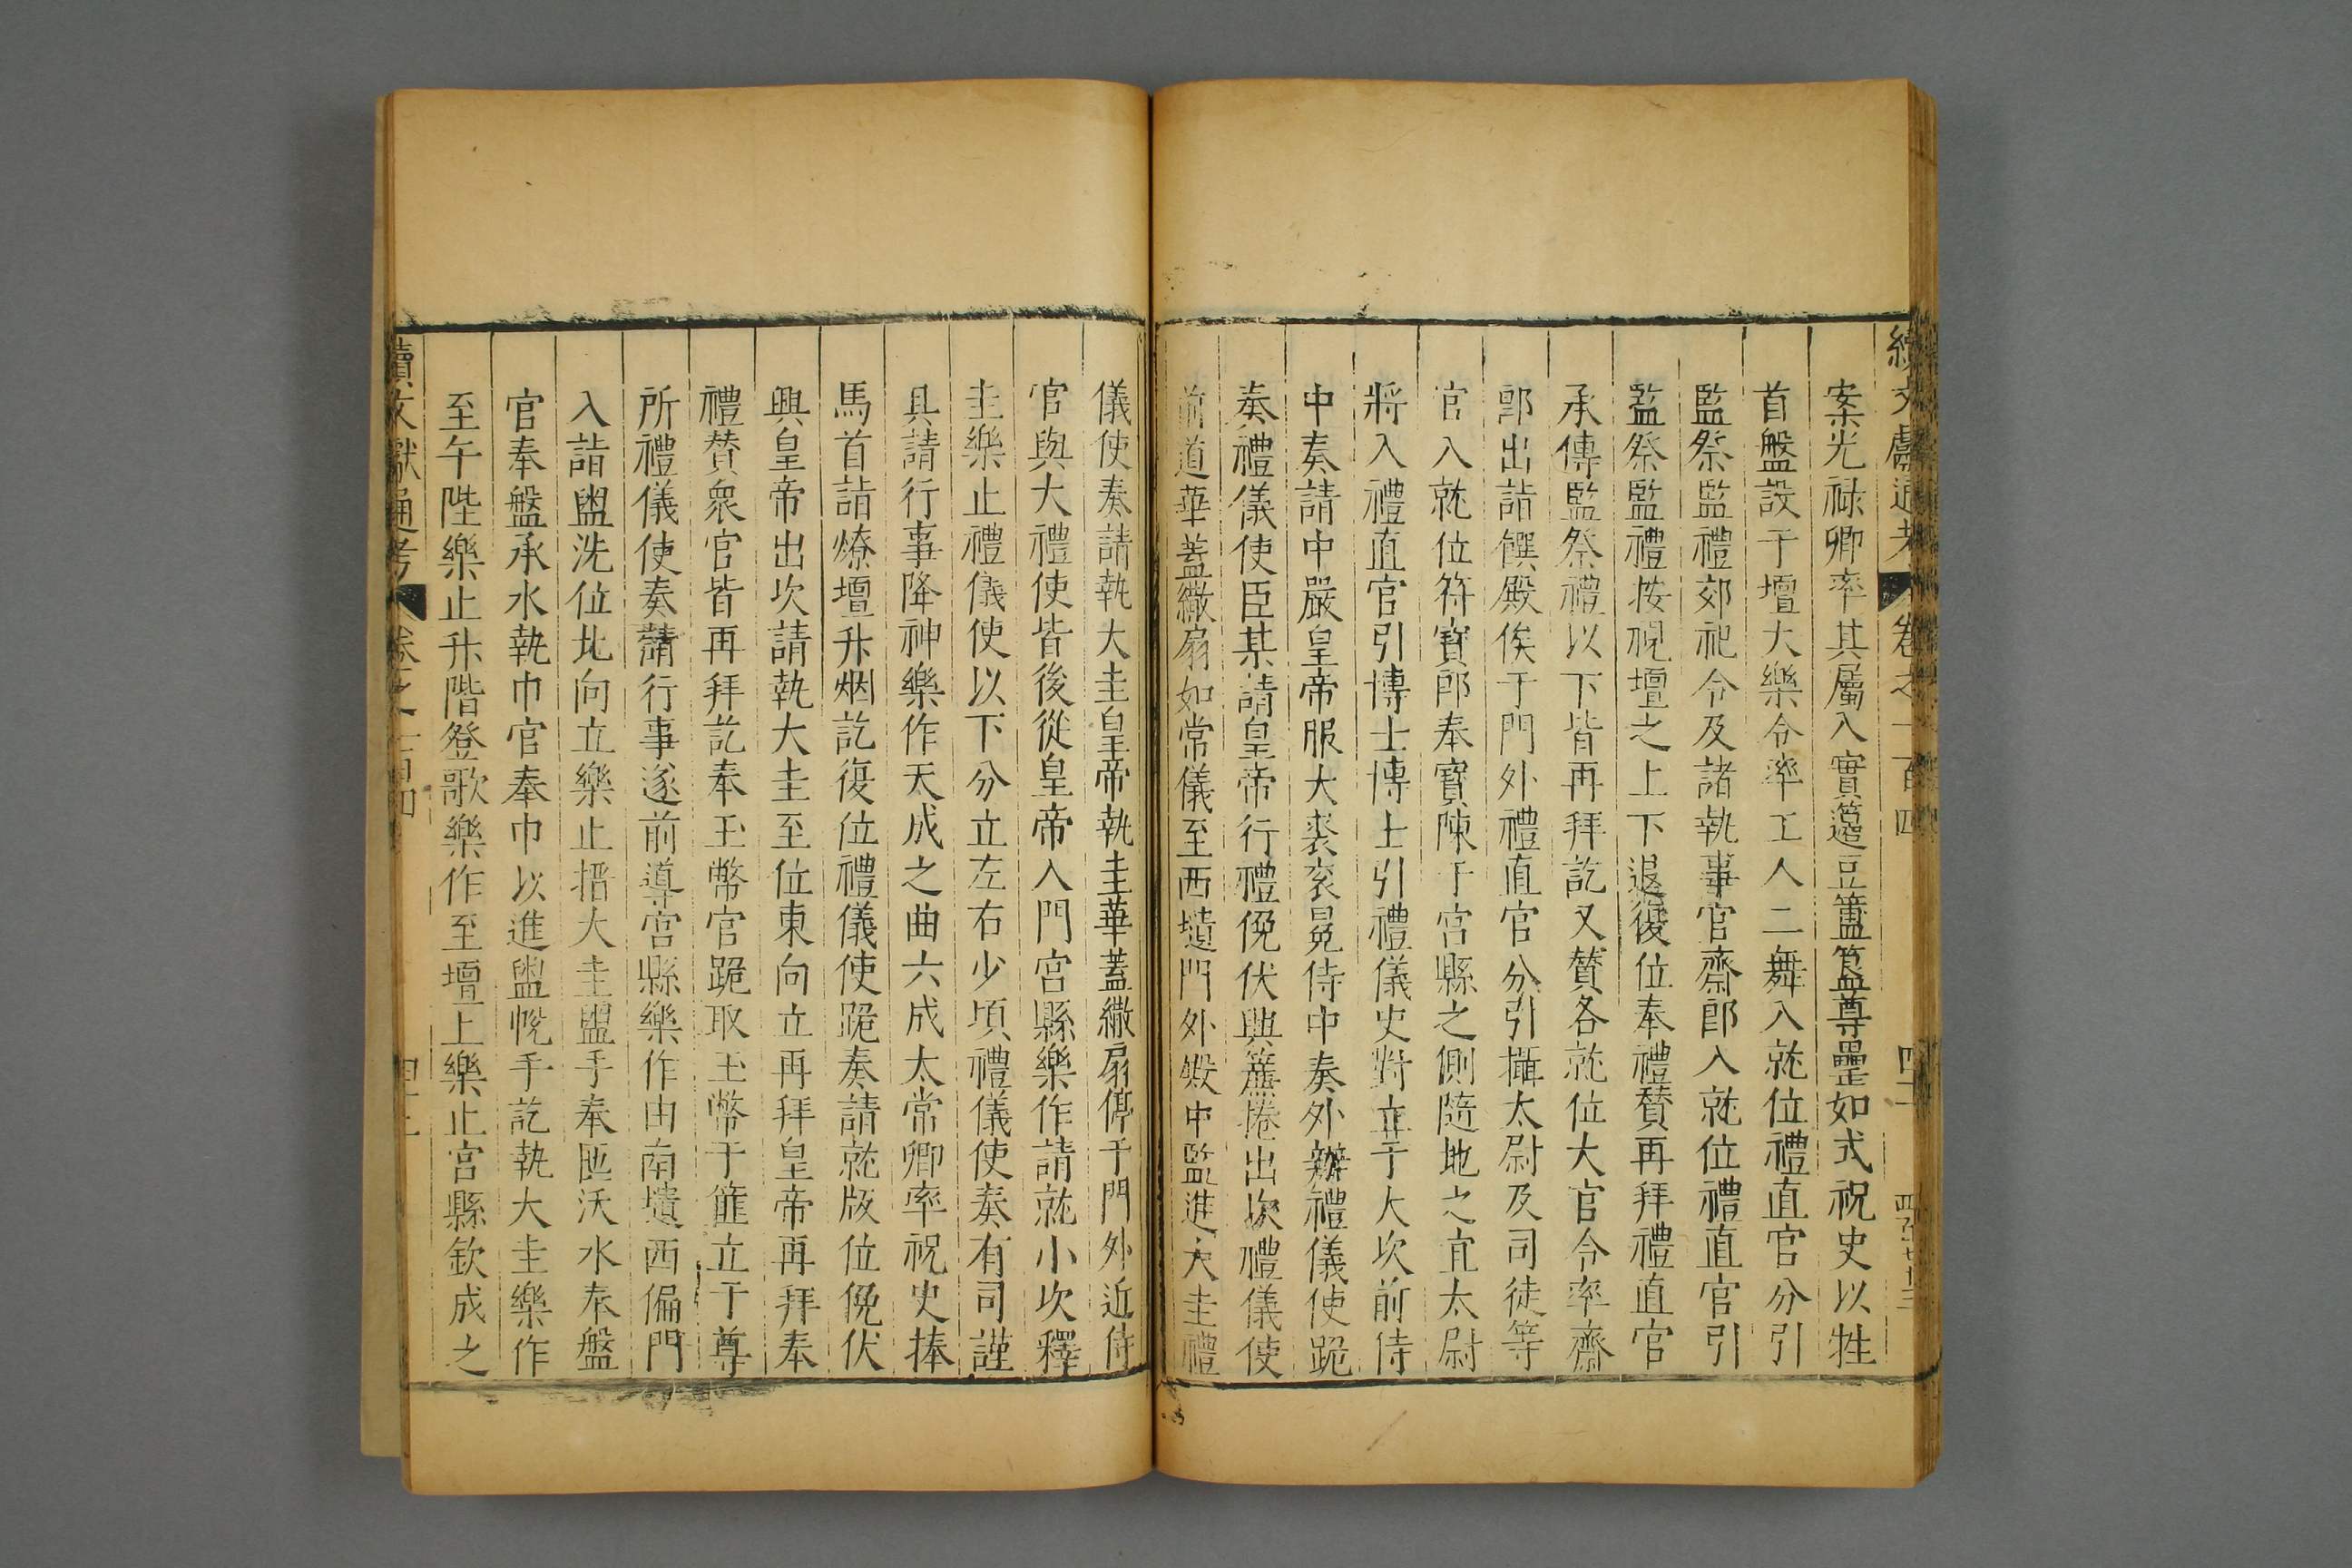 續文獻通考 卷之一百四 四十二
案光祿卿率其屬入實籩豆簠簋尊罍如式祝史以牲
首盤設于壇大樂令率工人二舞入就位禮直官分引
監祭監禮郊祀令及諸執事官齋郎入就位禮直官引
監祭監禮按視壇之上下退復位奉禮贊再拜禮直官
承傳監祭禮以下皆再拜訖又贊各就位大官令率齋
郎出詣饌殿俟于門外禮直官分引攝太尉及司徒等
官入就位符寶郎奉寶陳于宮縣之側隨地之宜太尉
將入禮直官引博士博士引禮儀史對立于大次前侍
中奏請中嚴皇帝服大裘袞冕侍中奏外辦禮儀使跪
奏禮儀使臣某請皇帝行禮俛伏興簾捲出次禮儀使
前道華蓋繖扇如常儀至西壝門外殿中監進大圭禮
儀使奏請執大圭皇帝執圭華蓋繖扇停于門外近侍
官與大禮使皆後從皇帝入門宮縣樂作請就小次釋
圭樂止禮儀使以下分立左右少頃禮儀使奏有司謹
具請行事降神樂作天成之曲六成太常卿率祝史捧
馬首詣燎壇升烟訖復位禮儀使跪奏請就版位俛伏
興皇帝出次請執大圭至位東向立再拜皇帝再拜奉
禮贊衆官皆再拜訖奉玉幣官跪取玉幣于篚立于尊
所禮儀使奏請行事遂前導宮縣樂作由南壝西偏門
入詣盥洗位北向立樂止搢大圭盥手奉匜沃水奉盤
官奉盤承水執巾官奉巾以進盥帨手訖執大圭樂作
至午陛樂止升階登歌樂作至壇上樂止宮縣欽成之
續文獻通考 卷之一百四